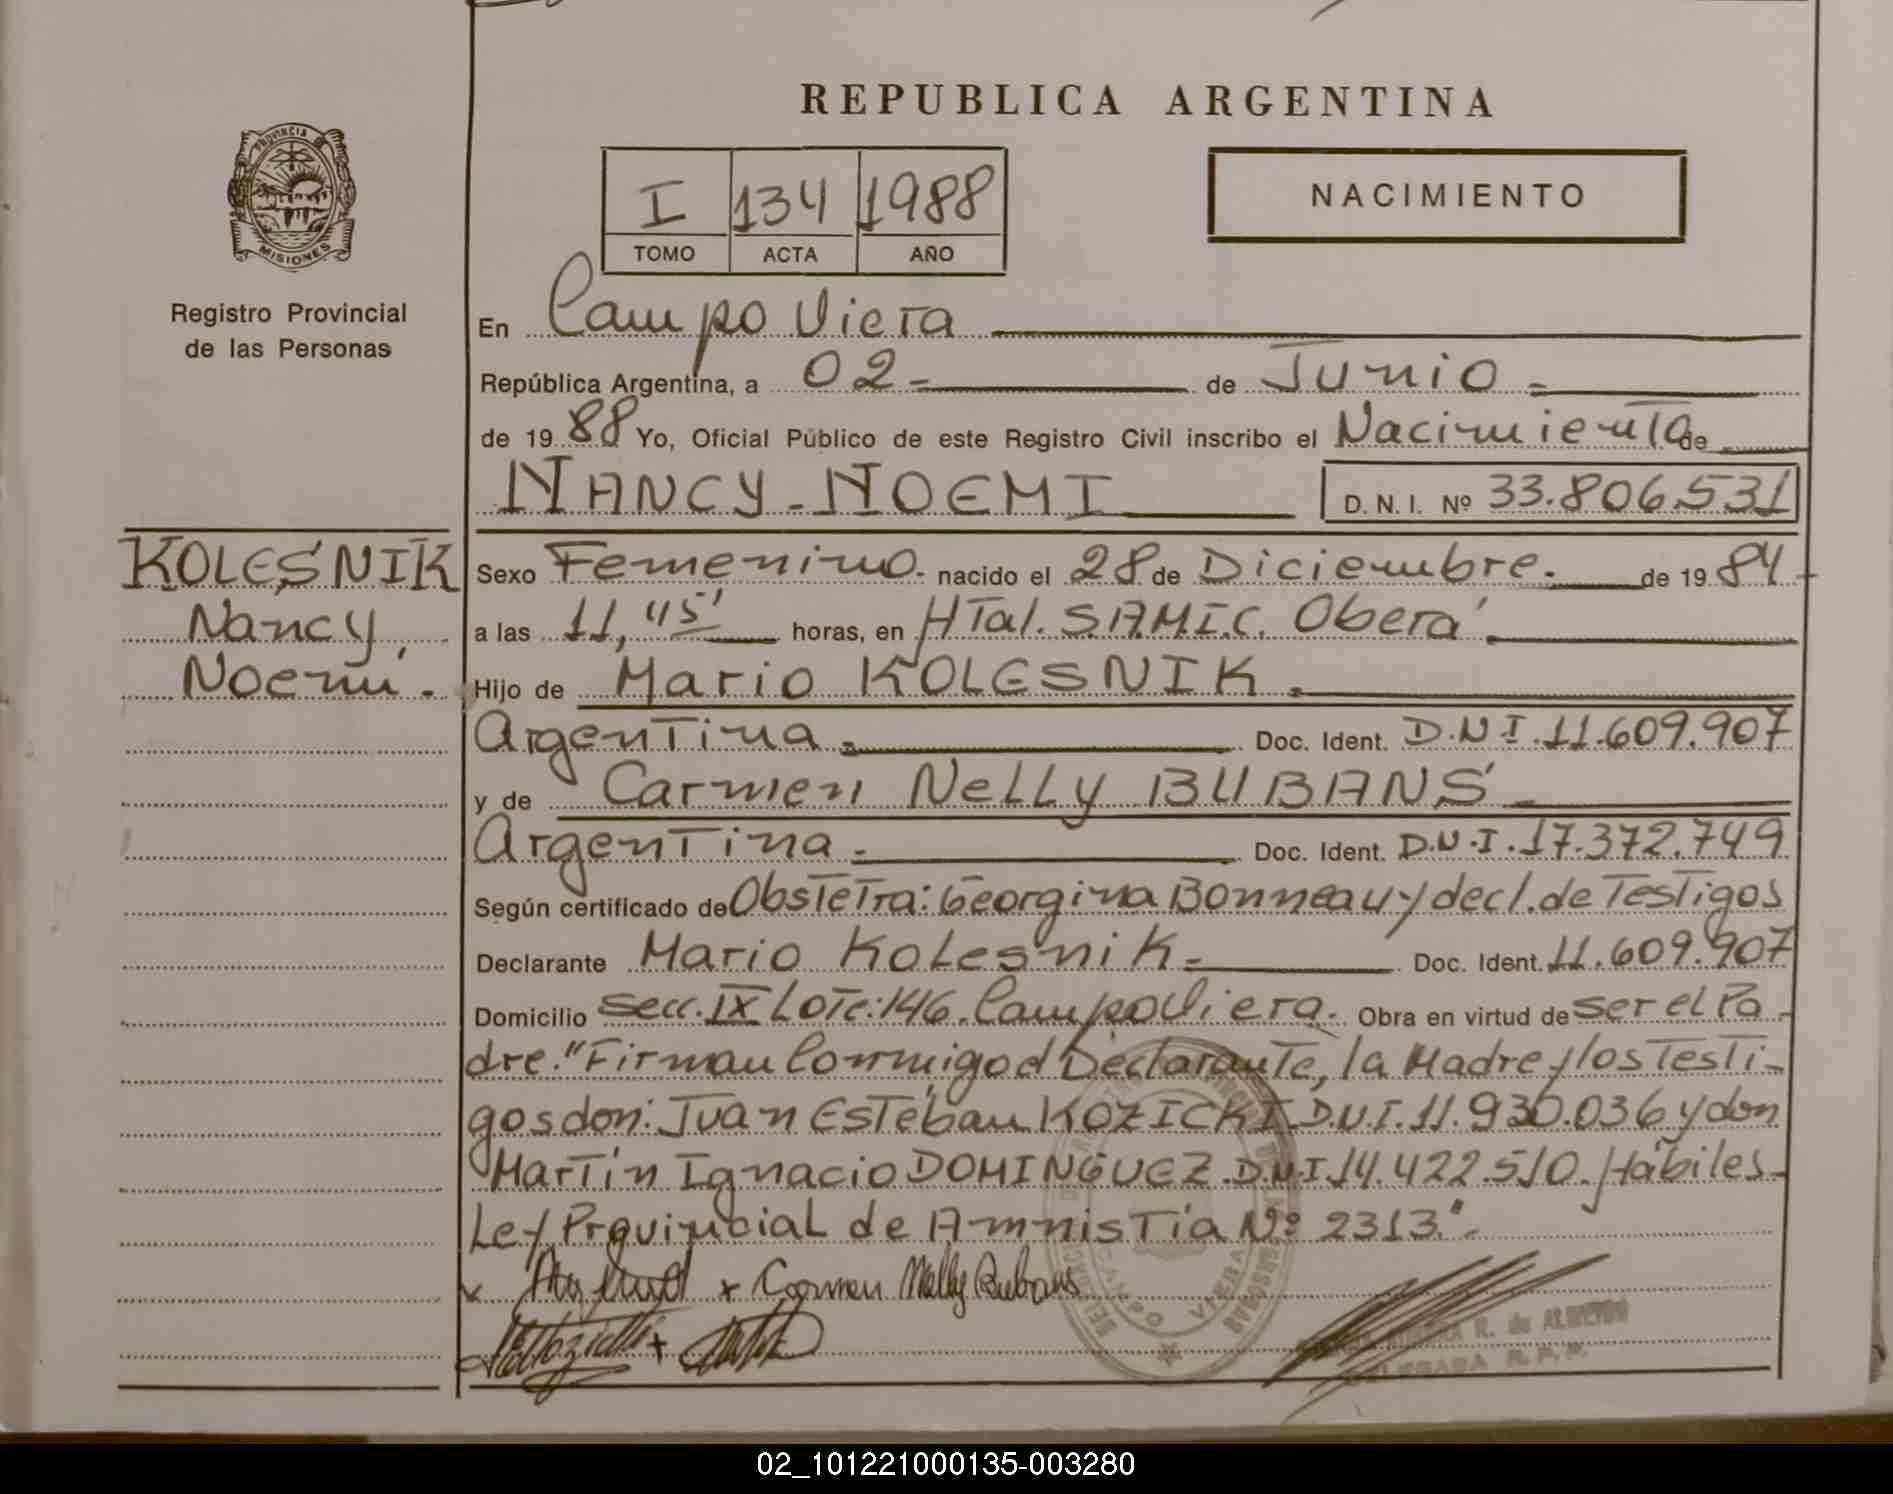 REPUBLICA ARGENTINA
PROVINCIA
MISIONES
Registro Provincial
de las Personas
I 134 1988
TOMO ACTA AÑO
NACIMIENTO
En Campo Viera
República Argentina, a 02 - de Junio -
de 19 88 Yo, Oficial Público de este Registro Civil inscribo el Nacimiento de
NANCY - NOEMI D. N. I. Nº 33.806.531
KOLESNIK
Nancy,
Noemí.
Sexo Femenino - nacido el 28 de Diciembre. de 19 84
a las 11,45' horas, en HTal. S.A.M.I.C. Oberá
Hijo de Mario KOLESNIK.
Argentina. Doc. Ident. D.N.I. 11.609.907
y de Carmen Nelly BUBANS
Argentina. Doc. Ident. D.N.I. 17.372.749
Según certificado de Obstetra: Georgina Bonneau y decl. de Testigos
Declarante Mario Kolesnik - Doc. Ident. 11.609.907
Domicilio secc. IX Lote: 146. Campo Viera. Obra en virtud de ser el Pa-
dre. "Firman Conmigo el Declarante, la Madre y los Testi-
gos don: Juan Esteban KOZICKI D.N.I. 11.930.036 y don
Martín Ignacio DOMINGUEZ. D.N.I 14.422.510. Hábiles-
Ley Provincial de Amnistía Nº 2313".
x + Carmen Nelly Bubans
+
CAMPO VIERA
R. de ALMEIDA
DELEGADA R. P. P.
02_101221000135-003280